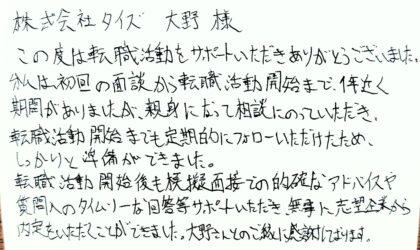 株式会社タイズ 大野様
この度は転職活動をサポートいただきありがとうございました。
私は初回の面談から転職活動開始まで1年近く
期間がありましたが、親身になって相談にのっていただき、
転職活動開始までも定期的にフォローいただけたため、
しっかりと準備ができました。
転職活動開始後も模擬面接での的確なアドバイスや
質問へのタイムリーな回答等サポートいただき、無事に志望企業から
内定をいただくことができました。大野さんとのご縁に感謝しております。